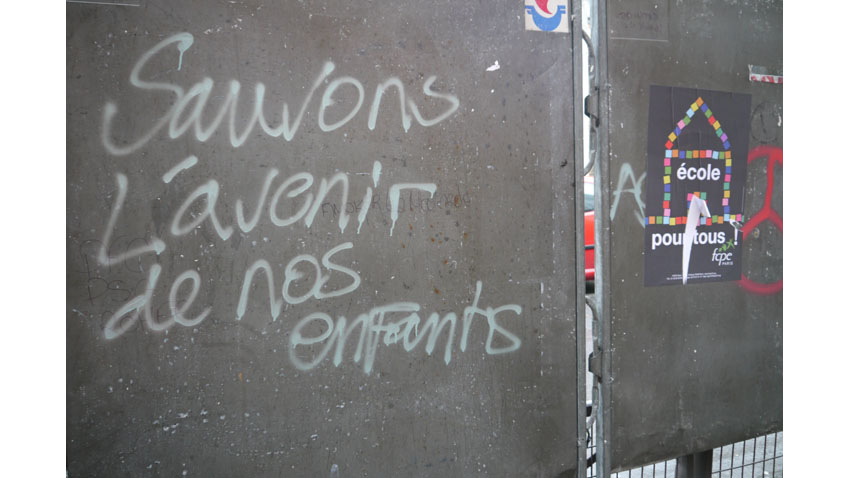 Sauvons
L'avenir
de nos
enfants
école
pour tous !
fcpe
PARIS